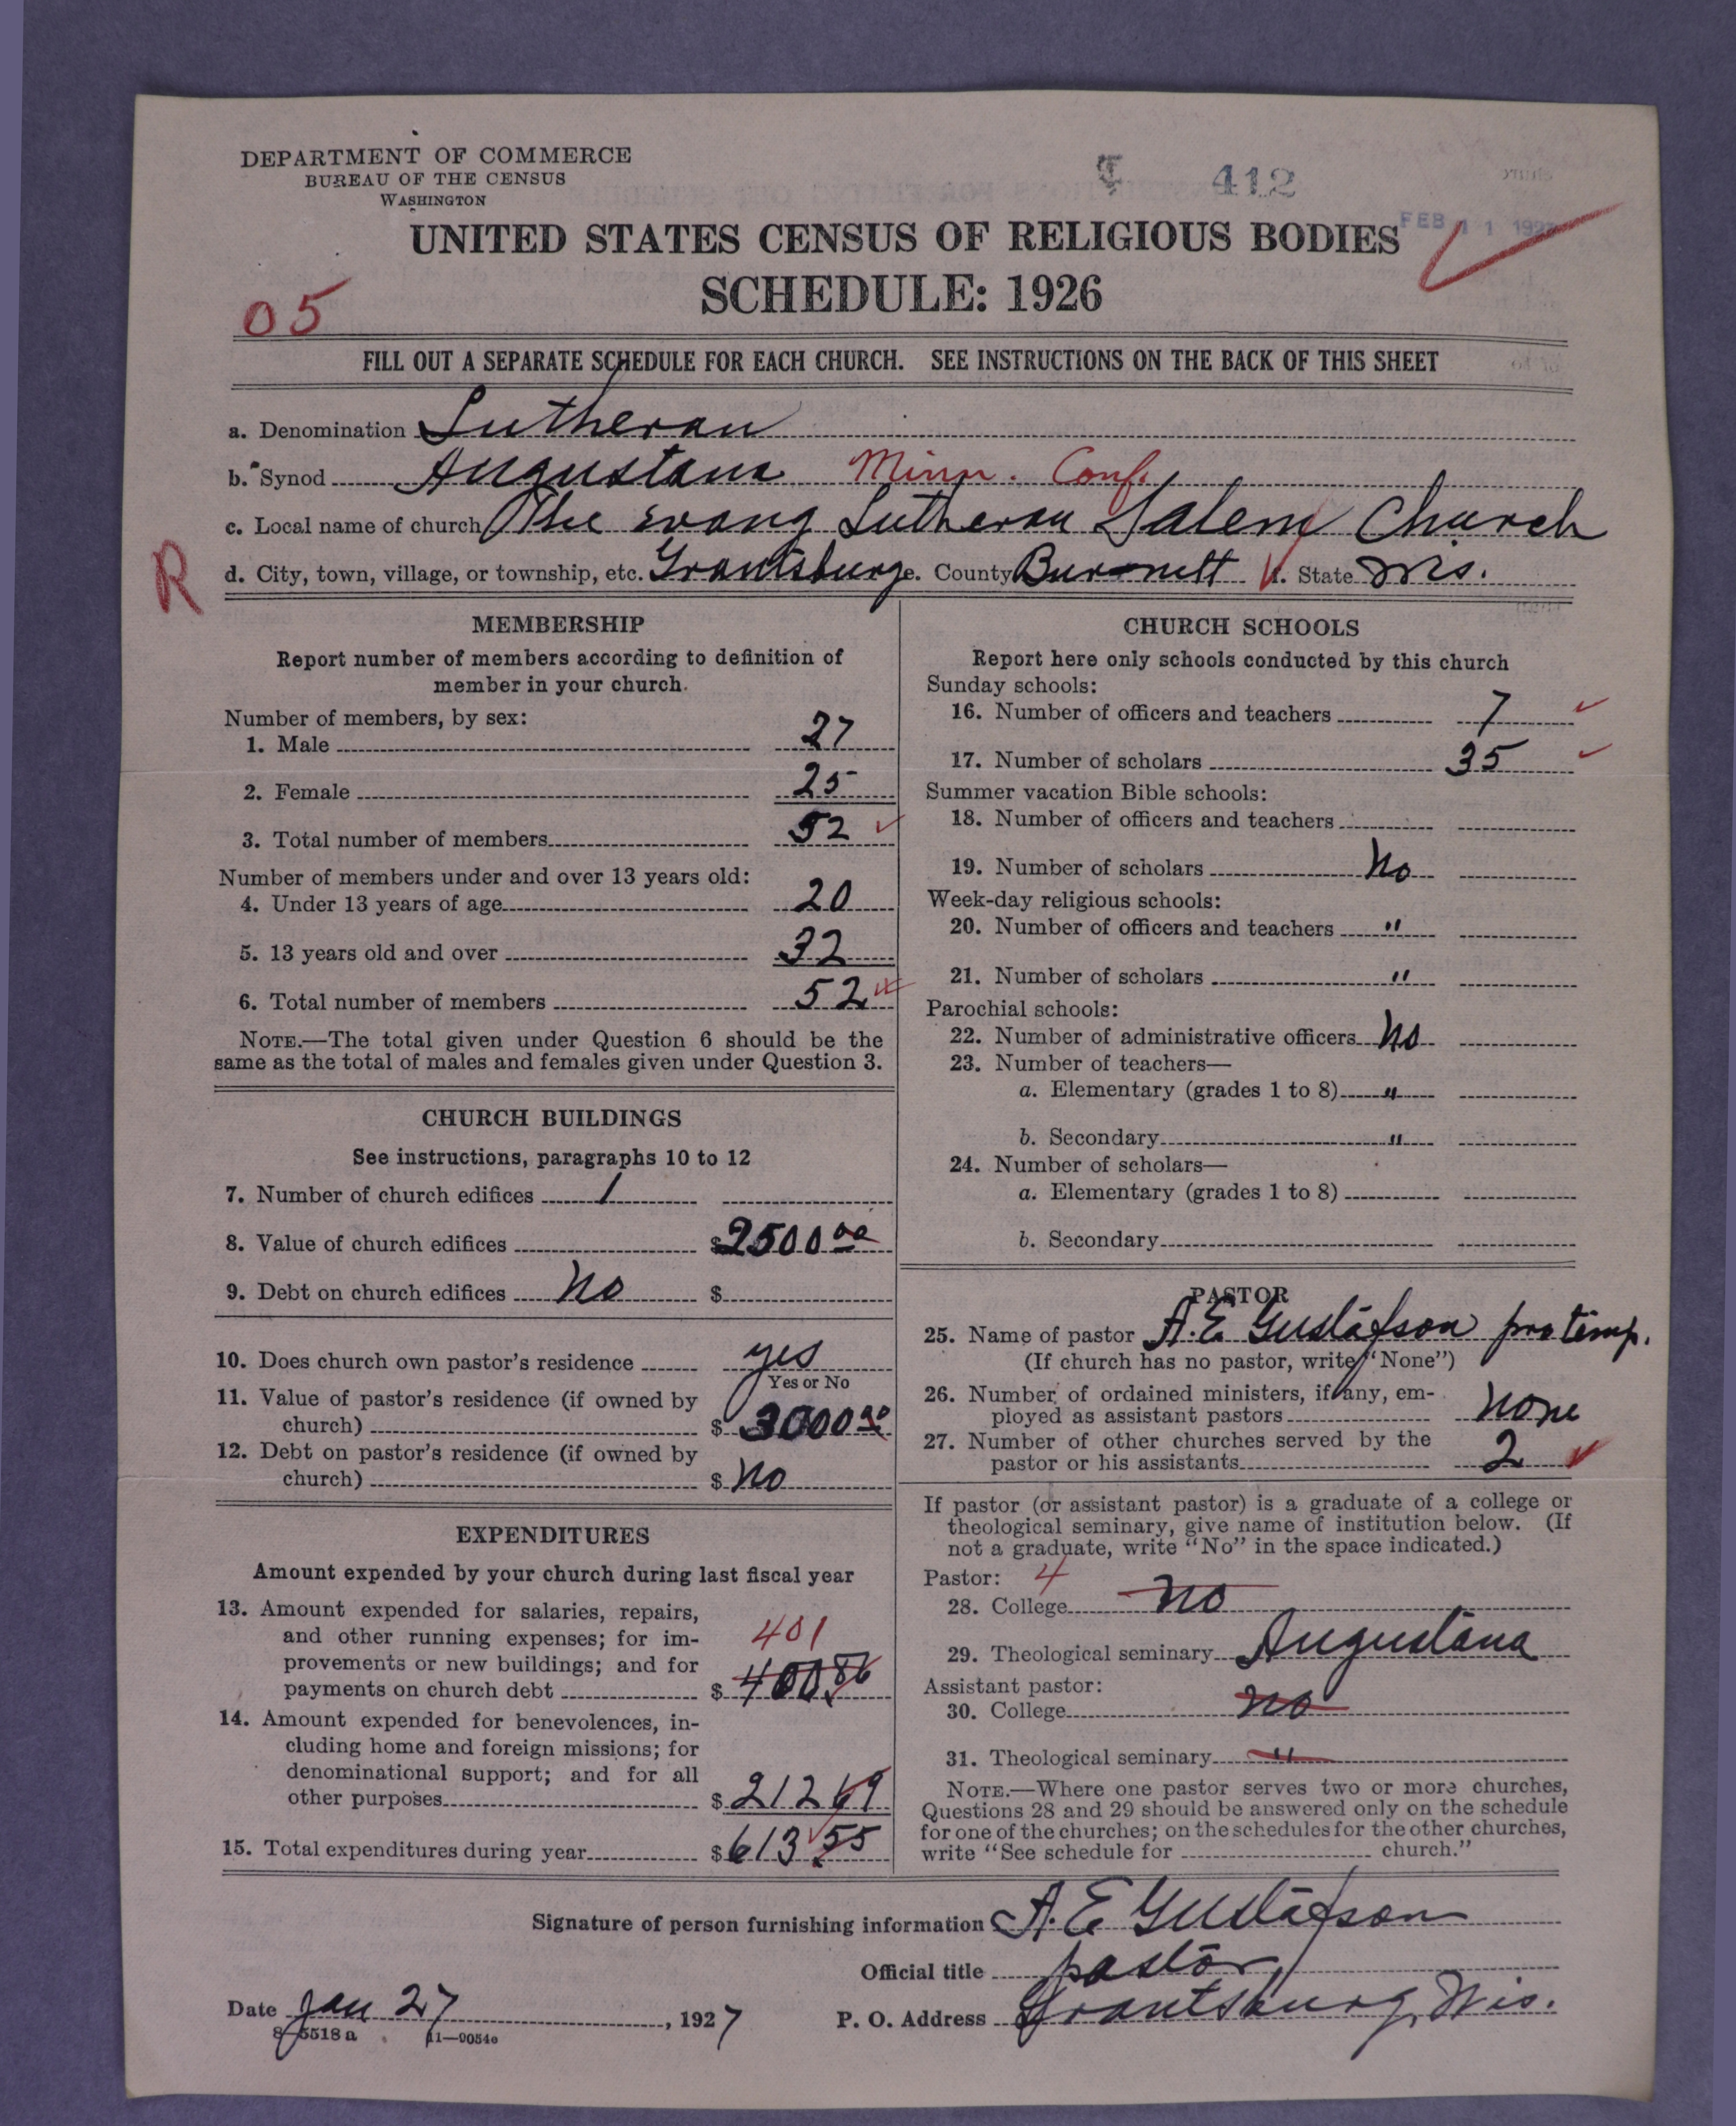 DEPARTMENT OF COMMERCE
BUREAU OF THE CENSUS
WASHINGTON
412
FEB 11 1927
UNITED STATES CENSUS OF RELIGIOUS BODIES
SCHEDULE: 1926
05
FILL OUT A SEPARATE SCHEDULE FOR EACH CHURCH. SEE INSTRUCTIONS ON THE BACK OF THIS SHEET
a. Denomination Lutheran
b. Synod Augustana Minn. Conf.
c. Local name of church The Evang Lutheran Salem Church
R
d. City, town, village, or township, etc. Grantsburg e. County Burnett f. State Wis.
MEMBERSHIP
Report number of members according to definition of
member in your church.
Number of members, by sex:
1. Male 27
2. Female 25
3. Total number of members 52
Number of members under and over 13 years old:
4. Under 13 years of age 20
5. 13 years old and over 32
6. Total number of members 52
NOTE.—The total given under Question 6 should be the
same as the total of males and females given under Question 3.
CHURCH BUILDINGS
See instructions, paragraphs 10 to 12
7. Number of church edifices 1
8. Value of church edifices $2500.00
9. Debt on church edifices no $
10. Does church own pastor's residence yes
Yes or No
11. Value of pastor's residence (if owned by
church) $3000.00
12. Debt on pastor's residence (if owned by
church) $ no
EXPENDITURES
Amount expended by your church during last fiscal year
13. Amount expended for salaries, repairs,
and other running expenses; for im- 401
provements or new buildings; and for
payments on church debt $ 400.86
14. Amount expended for benevolences, in-
cluding home and foreign missions; for
denominational support; and for all
other purposes $ 212 69
15. Total expenditures during year $ 613 55
CHURCH SCHOOLS
Report here only schools conducted by this church
Sunday schools:
16. Number of officers and teachers 7
17. Number of scholars 35
Summer vacation Bible schools:
18. Number of officers and teachers
19. Number of scholars no
Week-day religious schools:
20. Number of officers and teachers "
21. Number of scholars "
Parochial schools:
22. Number of administrative officers no
23. Number of teachers—
a. Elementary (grades 1 to 8) "
b. Secondary "
24. Number of scholars—
a. Elementary (grades 1 to 8)
b. Secondary
PASTOR
25. Name of pastor A. E. Gustafson pro temp.
(If church has no pastor, write "None")
26. Number of ordained ministers, if any, em-
ployed as assistant pastors none
27. Number of other churches served by the
pastor or his assistants 2
If pastor (or assistant pastor) is a graduate of a college or
theological seminary, give name of institution below. (If
not a graduate, write "No" in the space indicated.)
Pastor: 4
28. College no
29. Theological seminary Augustana
Assistant pastor:
30. College no
31. Theological seminary "
NOTE.—Where one pastor serves two or more churches,
Questions 28 and 29 should be answered only on the schedule
for one of the churches; on the schedules for the other churches,
write "See schedule for church."
Signature of person furnishing information A. E. Gustafson
Official title pastor
Date Jan 27, 1927 P. O. Address Grantsburg, Wis.
8—5518 a 11—9054c